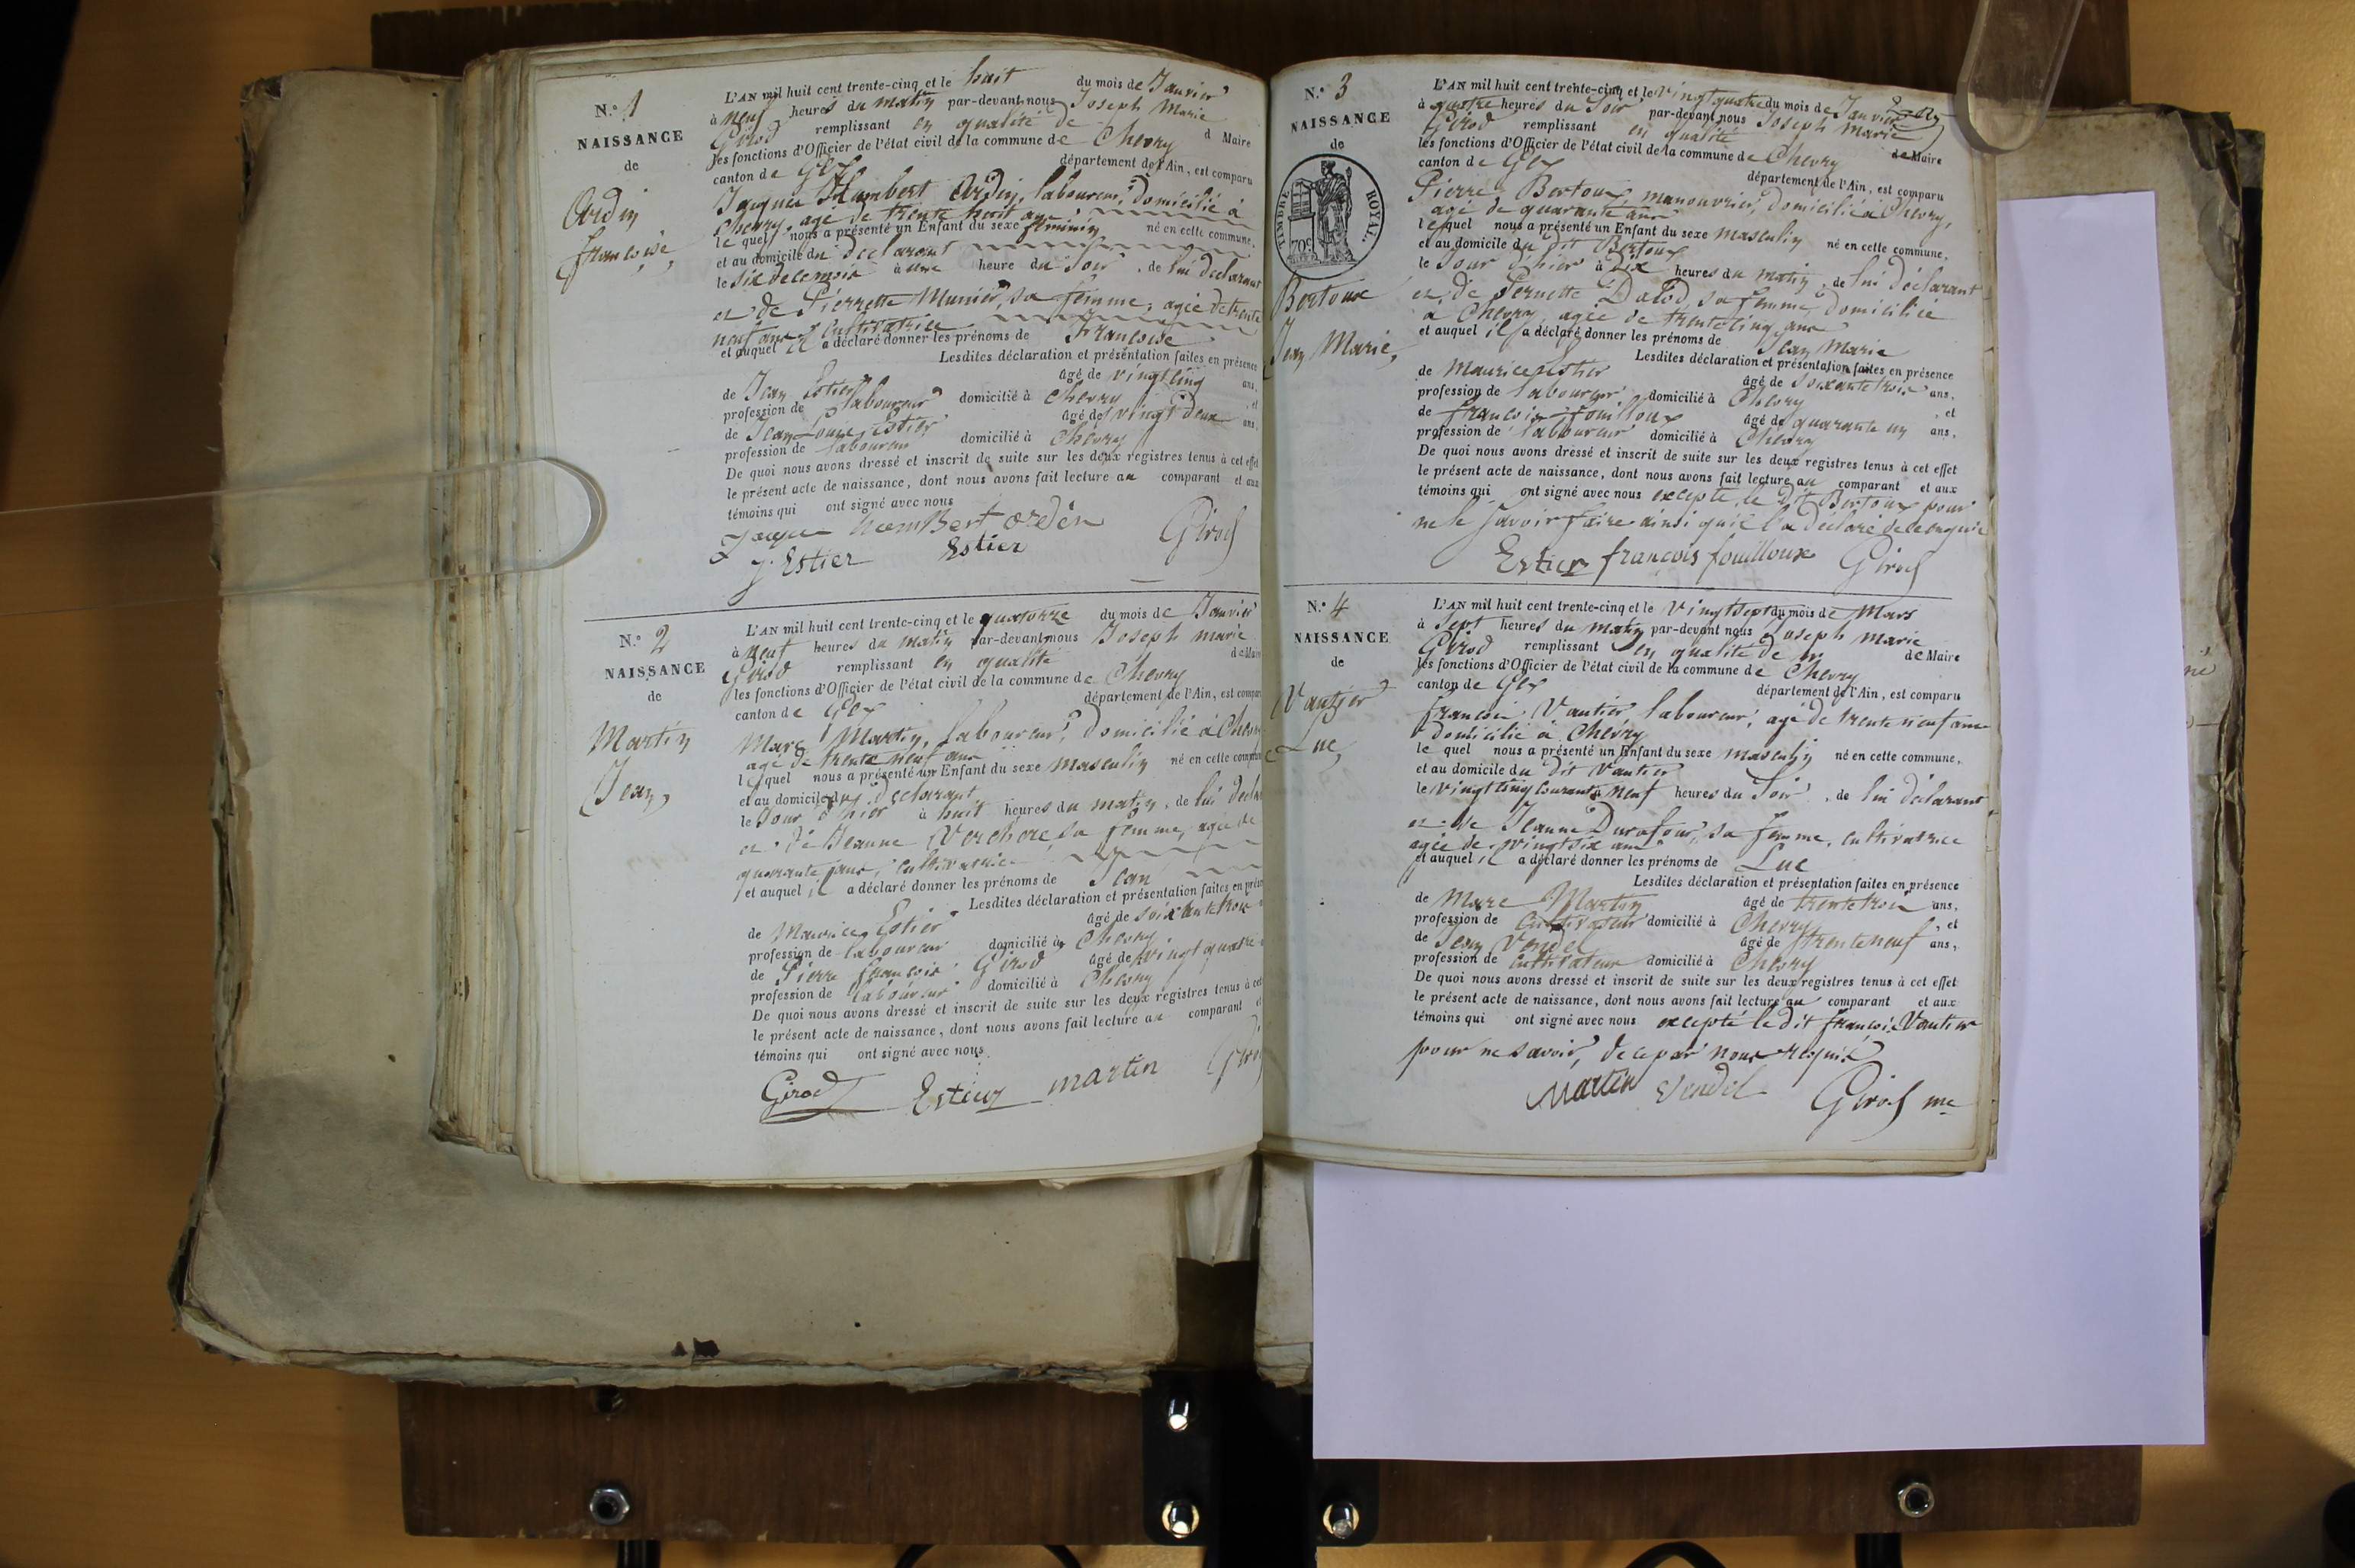 N.° 1
NAISSANCE
de
Ordin
françoise,
L'AN mil huit cent trente-cinq et le huit du mois de Janvier
à neuf heures du matin par-devant nous Joseph Marie
Girod remplissant en qualité de d Maire
les fonctions d'Officier de l'état civil de la commune de Chevry
canton de Gex département de l'Ain, est comparu
Jacques Humbert Ordin, laboureur, domicilié à
Chevry, agé de trente huit ans
le quel nous a présenté un Enfant du sexe féminin né en cette commune,
et au domicile du déclarant
le six de ce mois à une heure du Soir, de lui déclarant
et de Pierrette Munier, sa femme, agée de trente
neuf ans, Cultivatrice
et auquel il a déclaré donner les prénoms de Françoise
Lesdites déclaration et présentation faites en présence
de Jean Estier âgé de vingt cinq ans,
profession de laboureur domicilié à Chevry, et
de Jean Louis Estier âgé de vingt deux ans,
profession de laboureur domicilié à Chevry
De quoi nous avons dressé et inscrit de suite sur les deux registres tenus à cet effet
le présent acte de naissance, dont nous avons fait lecture au comparant et aux
témoins qui ont signé avec nous
Jaque humBert ordin Girod
J. Estier Estier
N.° 2
NAISSANCE
de
Martin
Jean,
L'AN mil huit cent trente-cinq et le quatorze du mois de Janvier
à neuf heures du matin par-devant nous Joseph marie
Girod remplissant en qualité de Maire
les fonctions d'Officier de l'état civil de la commune de Chevry
canton de Gex département de l'Ain, est compar
Marc Martin, laboureur, domicilié à Chev
agé de trente neuf ans
le quel nous a présenté un Enfant du sexe masculin né en cette comm
et au domicile du déclarant
le Jour d'hier à huit heures du matin, de lui decla
et de Jeanne Verchere sa femme, agée de
quarante ans, cultivatrice
et auquel il a déclaré donner les prénoms de Jean
Lesdites déclaration et présentation faites en prés
de Maurice Estier âgé de soixante trois
profession de laboureur domicilié à Chevry
de Pierre françois Girod âgé de vingt quatre
profession de laboureur domicilié à Chevry
De quoi nous avons dressé et inscrit de suite sur les deux registres tenus à cet
le présent acte de naissance, dont nous avons fait lecture au comparant et
témoins qui ont signé avec nous
Girod Estier martin Giro
N.° 3
NAISSANCE
de
TIMBRE ROYAL.
70c.
Bertoux
Jean Marie,
L'AN mil huit cent trente-cinq et le vingt quatre du mois de Janvier
à quatre heures du Soir par-devant nous Joseph Marie
Girod remplissant en qualité de Maire
les fonctions d'Officier de l'état civil de la commune de Chevry
canton de Gex département de l'Ain, est comparu
Pierre Bertoux, manouvrier, domicilié à Chevry,
agé de quarante ans
le quel nous a présenté un Enfant du sexe masculin né en cette commune,
et au domicile du dit Bertoux
le Jour d'hier à Dix heures du matin, de lui déclarant
et de Pernette Dalod, sa femme, domiciliée
à Chevry, agée de trente cinq ans
et auquel il a déclaré donner les prénoms de Jean Marie
Lesdites déclaration et présentation faites en présence
de Maurice Estier âgé de soixante trois ans,
profession de laboureur domicilié à Chevry, et
de françois fouilloux âgé de quarante un ans,
profession de laboureur domicilié à Chevry
De quoi nous avons dressé et inscrit de suite sur les deux registres tenus à cet effet
le présent acte de naissance, dont nous avons fait lecture au comparant et aux
témoins qui ont signé avec nous excepté le dit Bertoux pour
ne le savoir faire ainsi qu'il l'a déclaré de ce enquis
Estier françois fouilloux Girod
N.° 4
NAISSANCE
de
Vautier
Luc,
L'AN mil huit cent trente-cinq et le vingt sept du mois de Mars
à Sept heures du matin par-devant nous Joseph Marie
Girod remplissant en qualité de de Maire
les fonctions d'Officier de l'état civil de la commune de Chevry
canton de Gex département de l'Ain, est comparu
françois Vautier laboureur, agé de trente neuf ans
domicilié à Chevry
le quel nous a présenté un Enfant du sexe masculin né en cette commune,
et au domicile du dit Vautier
le vingt cinq courant à neuf heures du Soir, de lui déclarant
et de Jeanne Durafour, sa femme, cultivatrice
agée de vingt six ans
et auquel il a déclaré donner les prénoms de Luc
Lesdites déclaration et présentation faites en présence
de Marc Martin âgé de trente trois ans,
profession de Cultivateur domicilié à Chevry, et
de Jean Vendel âgé de trente neuf ans,
profession de Cultivateur domicilié à Chevry
De quoi nous avons dressé et inscrit de suite sur les deux registres tenus à cet effet
le présent acte de naissance, dont nous avons fait lecture au comparant et aux
témoins qui ont signé avec nous excepté le dit françois Vautier
pour ne savoir, de ce par nous requis
Martin Vendel Girod me